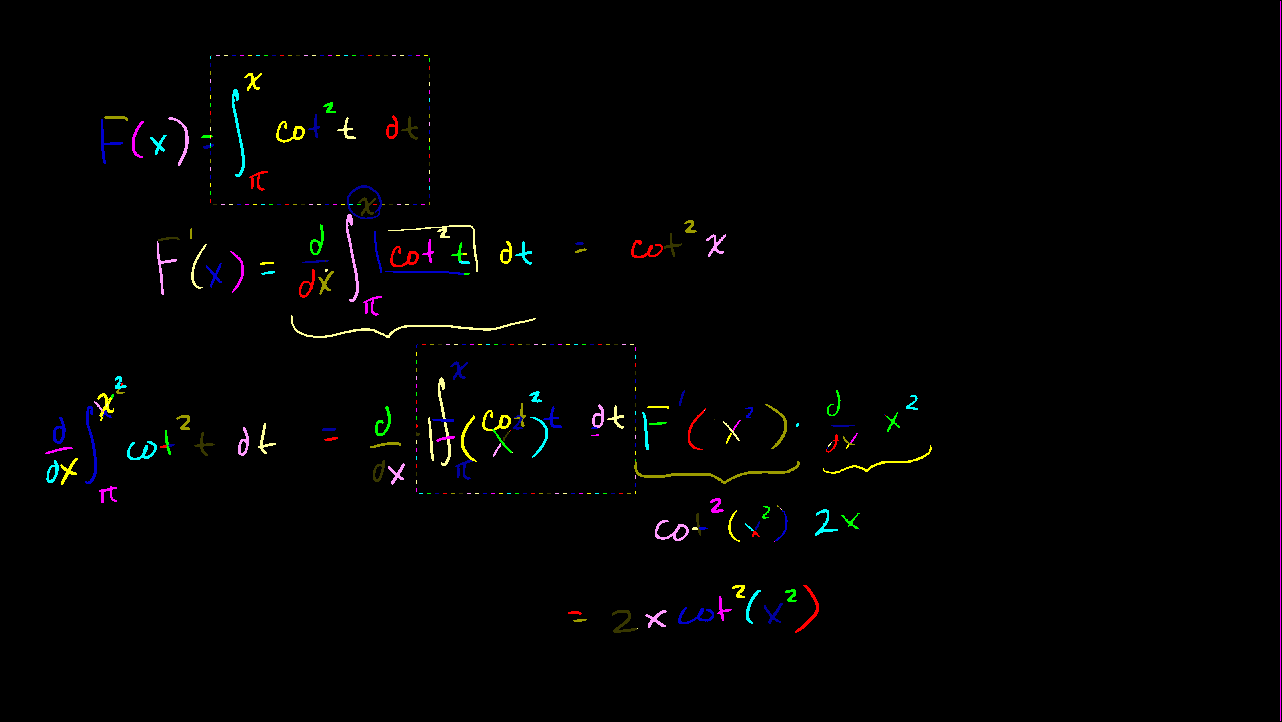 F(x) = ∫_π^x cot² t dt
F'(x) = d/dx ∫_π^x cot² t dt = cot² x
d/dx ∫_π^(x²) cot² t dt = d/dx F(x²) ∫_π^x cot² t dt F'(x²) · d/dx x²
cot²(x²) 2x
= 2x cot²(x²)